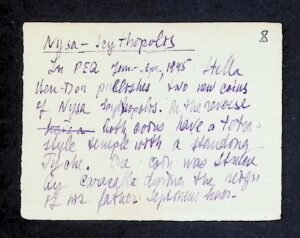 8
Nysa – Scythopolis
In PEQ Jan.-Apr. 1945 Stella
Ben-Dor publishes two new coins
of Nysa Scythopolis. On the reverse
both coins have a tetra-
style temple with a standing
Tyche. One coin was struck
by Caracalla during the reign
of his father Septimius Sever.